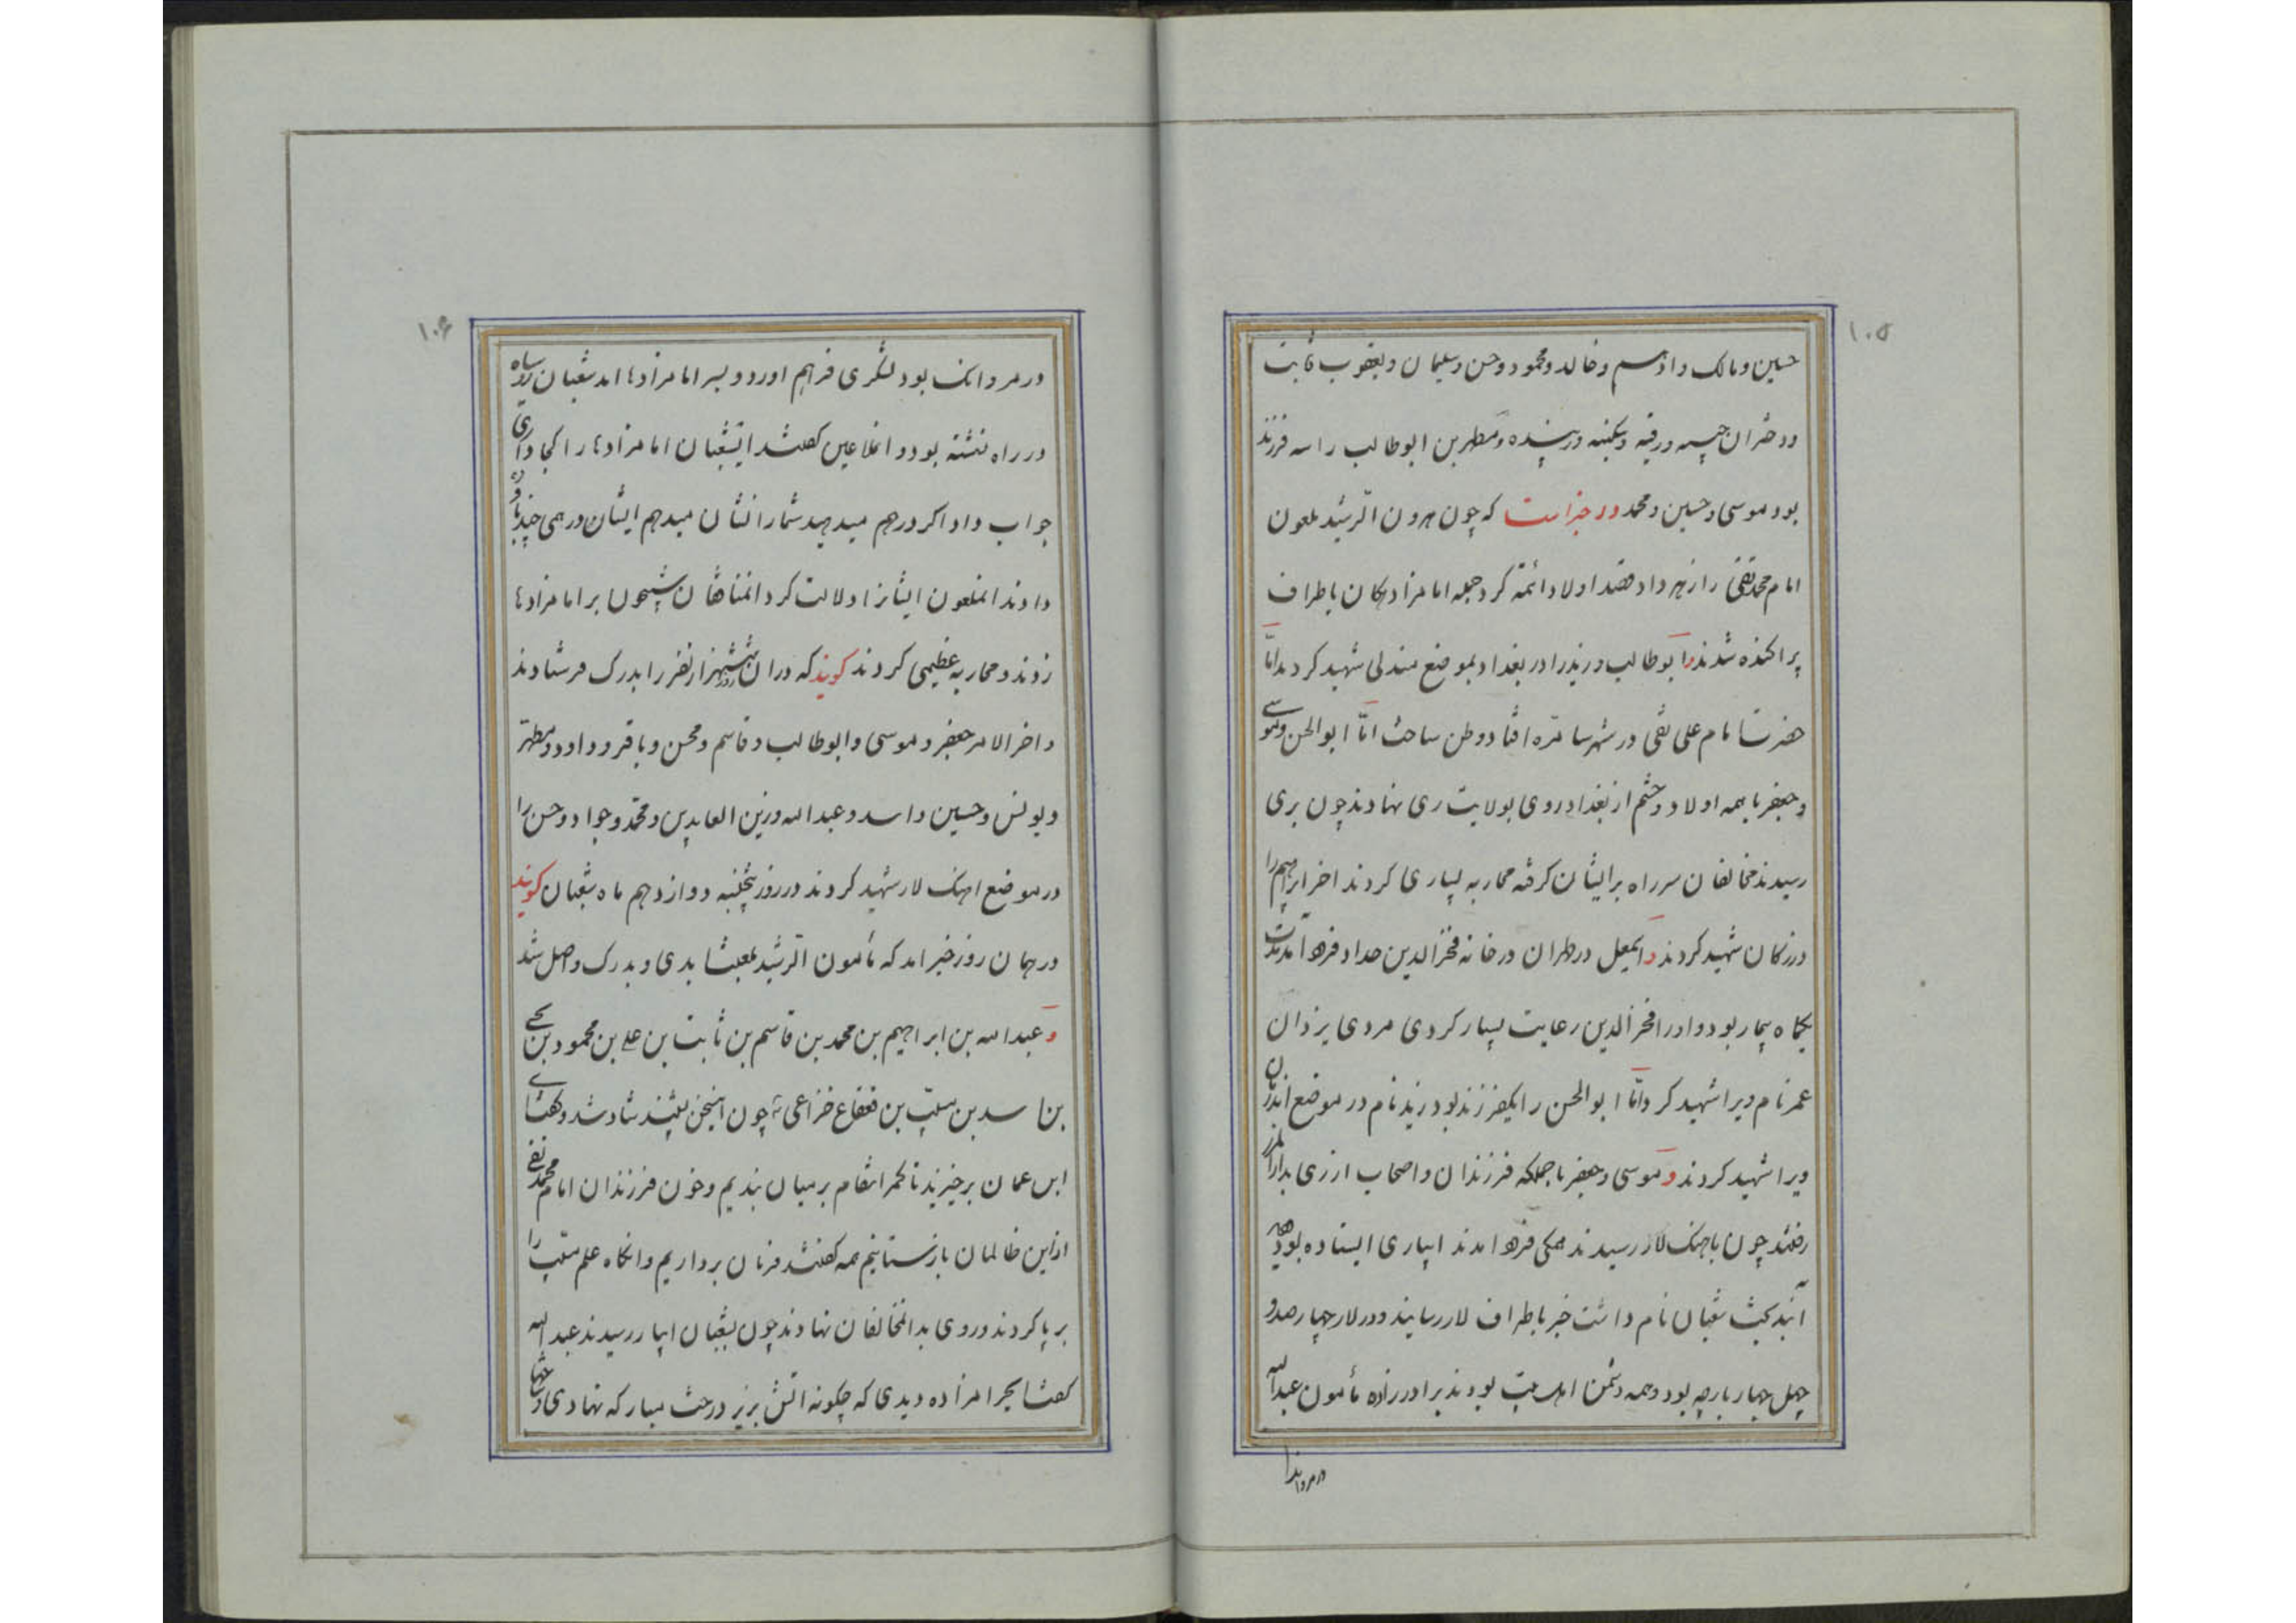 ۱۰۵
حسین و مالک و ادهم و خالد و محمود و حسن و سلیمان و یعقوب ثابت
و دختران حبیبه و رقیه و سکینه و زبنده و مطهر بن ابوطالب را سه فرزند
بود موسی و حسین و محمد در خبر است که چون هرون الرشید ملعون
امام محمد تقی را زهر داد و قصد اولاد ائمه کرد جمله امامزادهکان باطراف
پراکنده شدند و ابوطالب و زید را در بغداد بموضع مندلی شهید کردند امّا
حضرت امام علی نقی در شهر سامره افتاد و وطن ساخت امّا ابوالحسن و موسی
و جعفر با همه اولاد و حشم از بغداد روی بولایت ری نهادند چون بری
رسیدند مخالفان سر راه بر ایشان کرفته محاربه بسیاری کردند اخر ابراهیم را
در زکان شهید کردند و اسمعیل در طهران در خانه فخرالدین حداد فرود آمد مدت
یکماه بیمار بود و او را فخرالدین رعایت بسیار کردی مردی یزدان
عمر نام ویرا شهید کرد و امّا ابوالحسن را یکفرزند بود زید نام در موضع اندرمان
ویرا شهید کردند و موسی و جعفر با جملکه فرزندان و اصحاب از ری بدار المرز
رفتند چون باهنک لار رسیدند همکی فرود امدند ابیاری ایستاده بود
شعبان نام داشت خبر باطراف لار رسانید و در لار چهار صد و
چهل چهار پارچه بود و همه دشمن اهل بیت بودند برادرزاده مأمون عبدالله
در مرو اند
۱۰۶
در مرو انک بود لشکری فراهم اورد و بسر امامزادها امد شعبان روسیاه
در راه نشسته بود و انملاعین کفتند ایشعبان امامزادها را کجا داری
جواب داد اکر درهم میدهید شما را نشان میدهم ایشان درهمی چند باو
دادند انملعون ایشانرا دلالت کرد انمنافقان شبیخون بر امامزادها
زدند و محاربه عظیمی کردند کویند که در ان روز شش هزار نفر را بدرک فرستادند
و اخر الامر جعفر و موسی و ابوطالب و قاسم و محسن و باقر و داود و مطهر
و یونس و حسین و اسد و عبدالله و زین العابدین و محمد و جواد و حسن را
در موضع اهنک لار شهید کردند در روز پنجشنبه دوازدهم ماه شعبان کویند
در همان روز خبر امد که مأمون الرشید بلعنت ابدی و بدرک واصل شد
و عبدالله بن ابراهیم بن محمد بن قاسم بن ثابت بن علی بن محمود بن یحیی
بن اسد بن مسیّب بن قعقاع خزاعی چون اینسخن بشنید شاد شد و کفت ای
ابن عمان برخیزید تا کمر انتقام بر میان بندیم و خون فرزندان امام محمد تقی
از این ظالمان باز ستانیم همه کفتند فرمان برداریم و انکاه علم مسیّب را
بر پا کردند و روی بدانمخالفان نهادند چون بشعبان ابیار رسیدند عبدالله
کفت ایحرامزاده دیدی که چکونه اتش بزیر درخت مبارکه نهادی